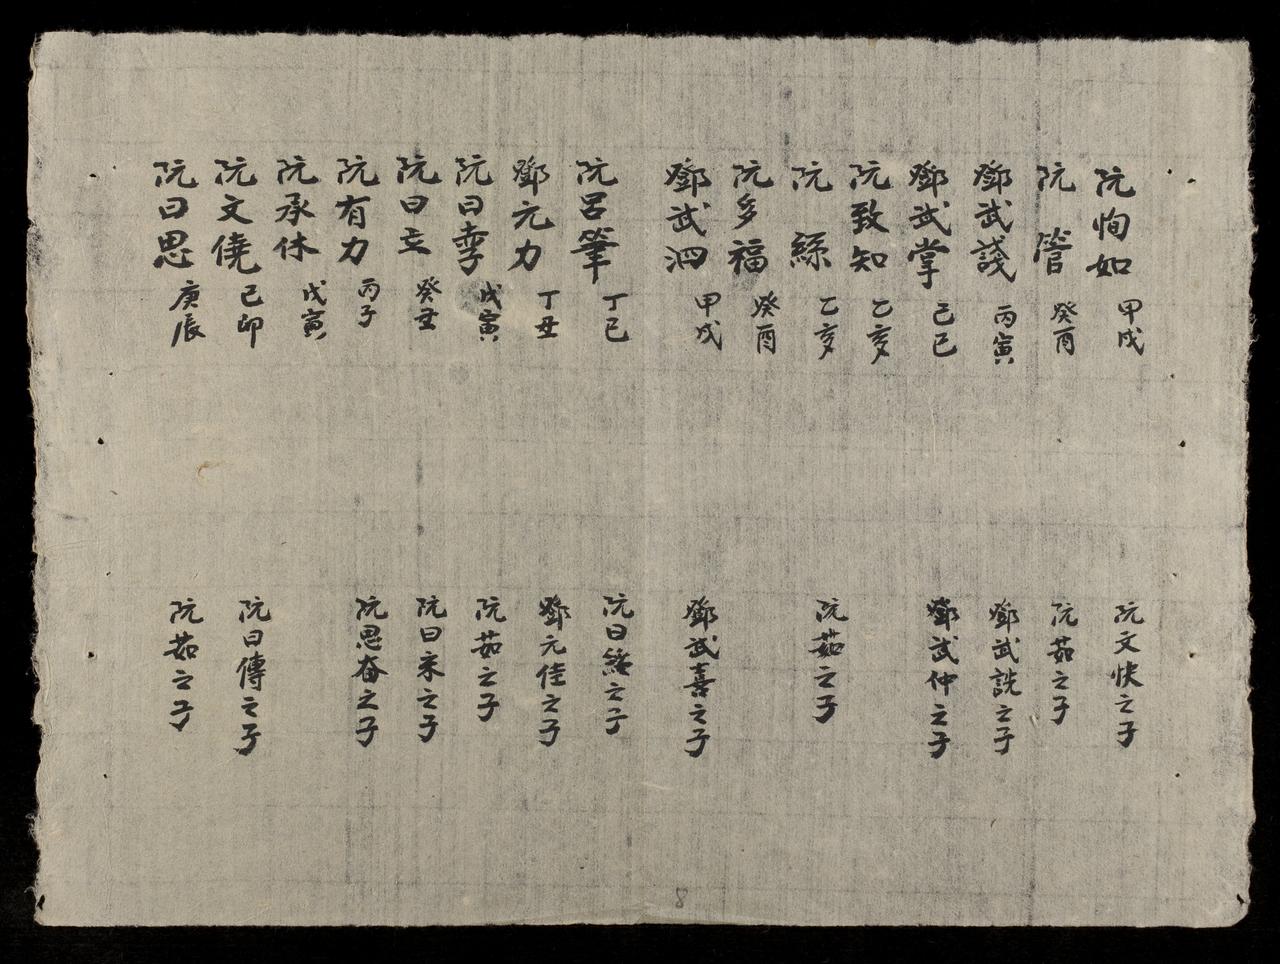 阮恂如 甲戌 阮文快之子
阮營 癸酉 阮茹之子
鄧武諓 丙寅 鄧武詵之子
鄧武掌 己巳 鄧武仲之子
阮致知 乙亥
阮絲 乙亥 阮茹之子
阮多福 癸酉
鄧武泗 甲戌 鄧武喜之子
阮呂筆 丁巳 阮曰綏之子
鄧元力 丁丑 鄧元佳之子
阮曰孛 戊寅 阮茹之子
阮曰立 癸丑 阮曰来之子
阮有力 丙子 阮思奋之子
阮承休 戊寅
阮文僥 己卯 阮曰傳之子
阮曰思 庚辰 阮茹之子
8